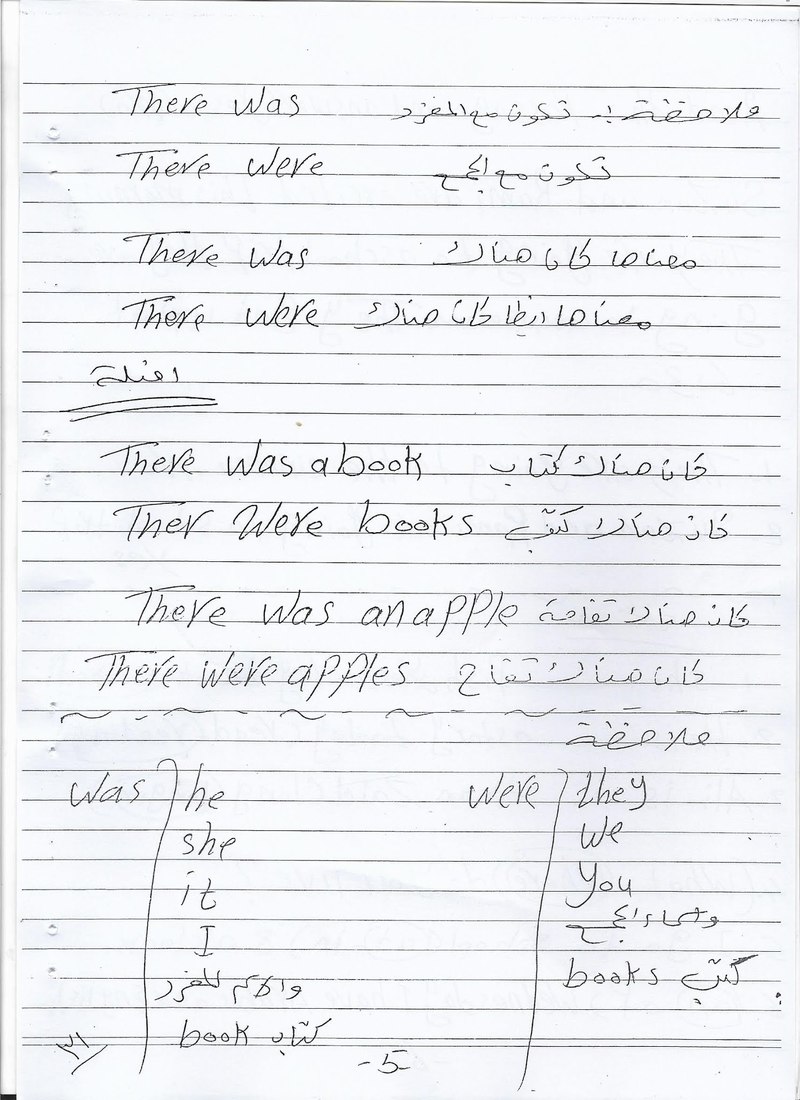 There was ملاحظة :- تكون مع المفرد
There were تكون مع الجمع
There was معناها كان هناك
There were معناها ايضا كان هناك
امثلة
There was a book كان هناك كتاب
Ther were books كان هناك كتب
There was an apple كان هناك تفاحة
There were apples كان هناك تفاح
ملاحظة
was he were they
she we
it you
I واسماء الجمع
والاسم المفرد books كتب
book كتاب
٣١
-5-